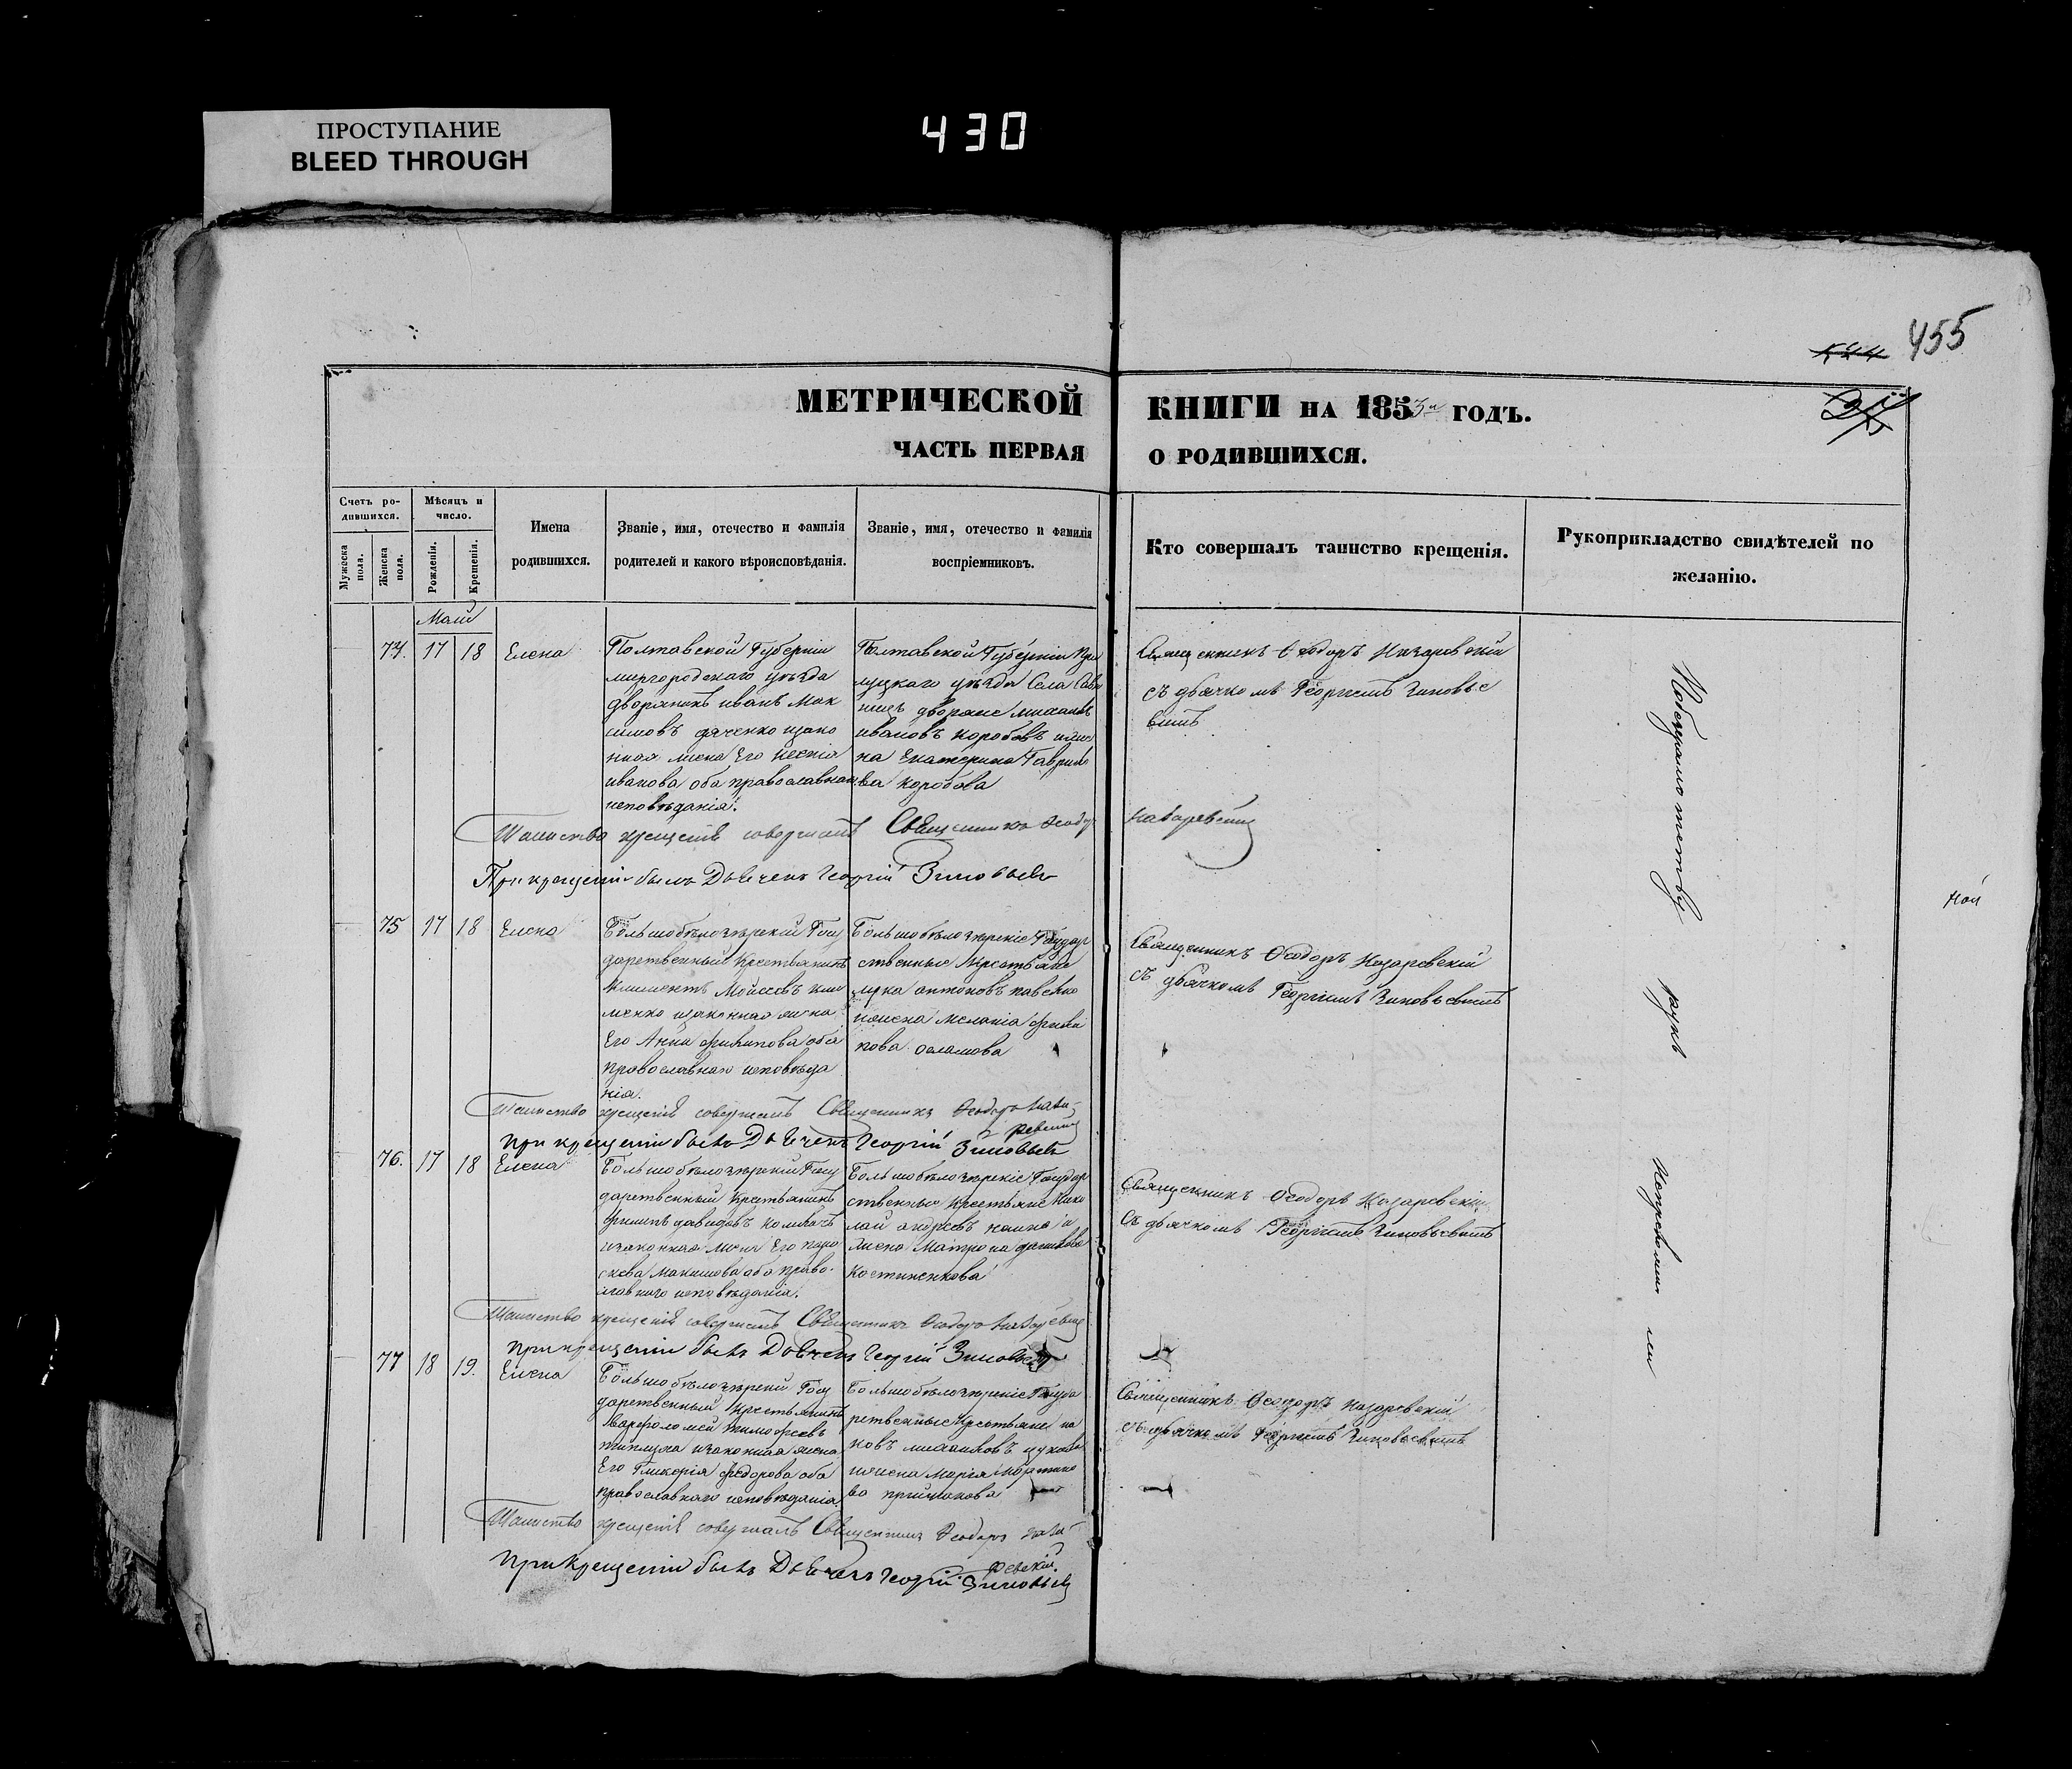 ПРОСТУПАНИЕ
BLEED THROUGH
430
455
МЕТРИЧЕСКОЙ КНИГИ НА 1853 ГОДЪ.
ЧАСТЬ ПЕРВАЯ О РОДИВШИХСЯ.
Счетъ ро-
дившихся.
Мужеска пола.
Женска пола.
Мѣсяцъ и
число.
Рожденія.
Крещенія.
Имена
родившихся.
Званіе, имя, отечество и фамилія
родителей и какого вѣроисповѣданія.
Званіе, имя, отечество и фамилія
воспріемниковъ.
Кто совершалъ таинство крещенія.
Рукоприкладство свидѣтелей по
желанію.
Май
74. 17 18 Елена
Полтавской Губерніи
миргородскаго уѣзда
дворянинъ иванъ Мак
симовъ дяченко изако
нная жена Его
иванова оба православнаго
исповѣданія.
Полтавской Губерніи При
луцкаго уѣзда Села
дворяне михаилъ
ивановъ коробовъ ижен
на Екатерина Гаврило
ва коробова
Священникъ Ѳеодоръ Назаревскій
съ дьячкомъ Георгіемъ Зиновье
вымъ
Таинство крещенія совершалъ Священникъ Ѳеодоръ Назаревскій
При крещеніи былъ Дьячекъ Георгій Зиновьевъ
75 17 18 Елена
Большобѣлозѣрскій Госу
дарственный Крестьянинъ
Климентъ Моисеевъ кли
менко изаконная жена
Его Анна филипова оба
православнаго исповѣда
нія.
Большобѣлозѣрскіе Государ
ственные Крестьяне
антоновъ
ижена Меланія
Священникъ Ѳеодоръ Назаревскій
съ дьячкомъ Георгіемъ Зиновьевымъ
Таинство крещенія совершалъ Священникъ Ѳеодоръ Наза-
ревскій
При крещеніи былъ Дьячекъ Георгій Зиновьевъ
76. 17 18 Елена
Большобѣлозѣрскій Госу
дарственный Крестьянинъ
Филипъ давидовъ
изаконная жена Его пара
скева Максимова оба право-
славного исповѣданія.
Большобѣлозѣрскіе Государ
ственные Крестьяне Нико
лай андреевъ и
жена Матрона
Костиненкова
Священникъ Ѳеодоръ Назаревскій
съ дьячкомъ Георгіемъ Зиновьевымъ
Таинство крещенія совершалъ Священникъ Ѳеодоръ Назаревскій
При крещеніи былъ Дьячекъ Георгій Зиновьевъ
77 18 19. Елена
Большобѣлозѣрскій Госу
дарственный Крестьянинъ
варфоломей тимофеевъ
изаконная жена
Его Гликерія федорова оба
православнаго исповѣданія.
Большобѣлозѣрскіе Госуда
рственные Крестьяне
михаиловъ
ижена Марія Мартино
ва
Священникъ Ѳеодоръ Назаревскій
съ дьячкомъ Георгіемъ Зиновьевымъ
Таинство крещенія совершалъ Священникъ Ѳеодоръ Наза
ревскій.
При крещеніи былъ Дьячекъ Георгій Зиновьевъ